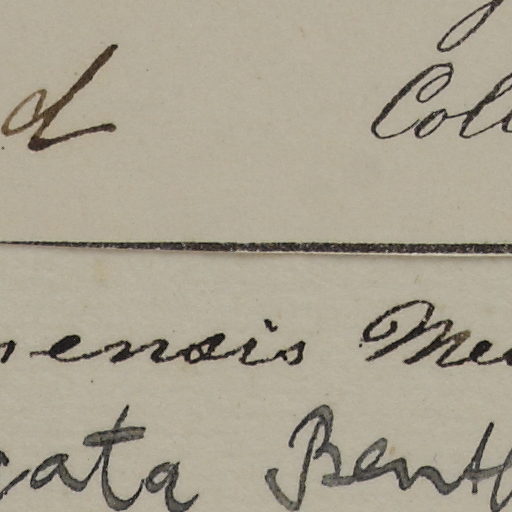 Coll
ensis Me
cata Benth